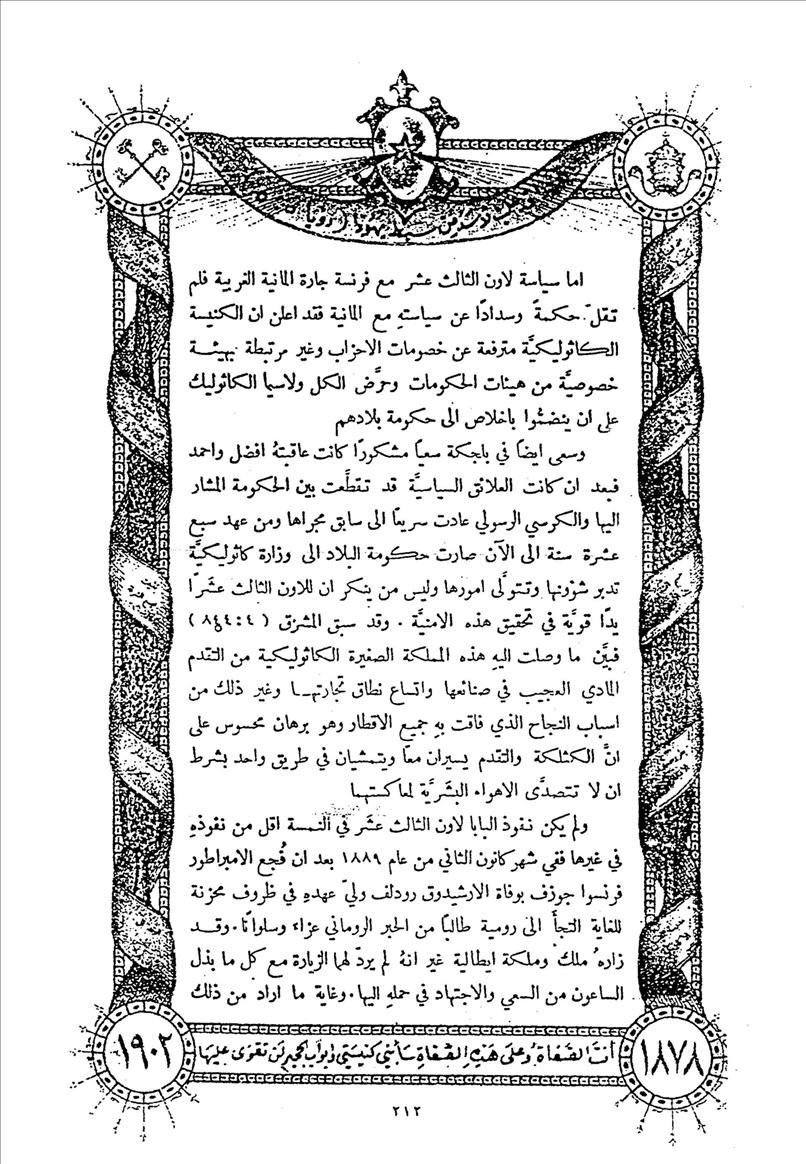 غلب الاسد من سبط يهوذا (رؤيا
اما سياسة لاون الثالث عشر مع فرنسة جارة المانية الغربية فلم
تقلّ حكمةً وسدادًا عن سياستهِ مع المانية فقد اعلن ان الكنيسة
الكاثوليكيَّة مترفعة عن خصومات الاحزاب وغير مرتبطة بهيئة
خصوصيَّة من هيئات الحكومات وحرَّض الكل ولاسيما الكاثوليك
على ان ينضمُّوا باخلاص الى حكومة بلادهم
وسعى ايضًا في بلجكة سعيًا مشكورًا كانت عاقبتهُ افضل واحمد
فبعد ان كانت العلائق السياسيَّة قد تقطَّعت بين الحكومة المشار
اليها والكرسي الرسولي عادت سريعًا الى سابق مجراها ومن عهد سبع
عشرة سنة الى الآن صارت حكومة البلاد الى وزارة كاثوليكيَّة
تدبر شؤونها وتتولَّى امورها وليس من ينكر ان للاون الثالث عشَر
يدًا قويَّة في تحقيق هذه الامنيَّة . وقد سبق المشرق ( ٤:٨٤٤ )
فبيَّن ما وصلت اليهِ هذه المملكة الصغيرة الكاثوليكية من التقدم
المادي العجيب في صنائعها واتساع نطاق تجارتهـا وغير ذلك من
اسباب النجاح الذي فاقت بهِ جميع الاقطار وهو برهان محسوس على
انَّ الكثلكة والتقدم يسيران معًا ويتمشيان في طريق واحد بشرط
ان لا تتصدَّى الاهواء البشَريَّة لمعاكستهما
ولم يكن نفوذ البابا لاون الثالث عشَر في النمسة اقل من نفوذهِ
في غيرها ففي شهر كانون الثاني من عام ١٨٨٩ بعد ان فُجع الامبراطور
فرنسوا جوزف بوفاة الارشيدوق رودلف وليّ عهدهِ في ظروف محزنة
للغاية التجأَ الى رومية طالبًا من الحبر الروماني عزاء وسلوانًا . وقـد
زارهُ ملك وملكة ايطالية غير انهُ لم يردّ لهما الزيارة مع كل ما بذل
الساعون من السعي والاجتهاد في حملهِ اليها . وغاية ما اراد من ذلك
١٩٠٢
أنتَ الصَّفاةُ وعلى هَذِهِ الصَّفاةِ سَأبني كنيسَتي وَابوابُ الجحيمِ لَن تقوَى عليهَا
١٨٧٨
٢١٢